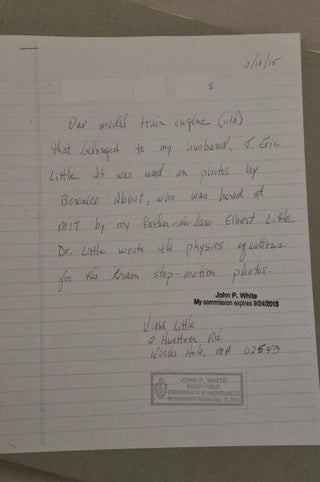 2/18/15
s
One model train engine (old)
that belonged to my husband, J. Eric
Little. It was used in photos by
Berenice Abbot, who was hired at
MIT by my father-in-law Elbert Little.
Dr. Little wrote the physics equations
for the train stop-motion photos.
John P. White
My commission expires 9/24/2015
Little
2 Huettner Rd
Woods Hole, MA 02543
JOHN P. WHITE
NOTARY PUBLIC
COMMONWEALTH OF MASSACHUSETTS
My Commission Expires Sept. 24, 2015